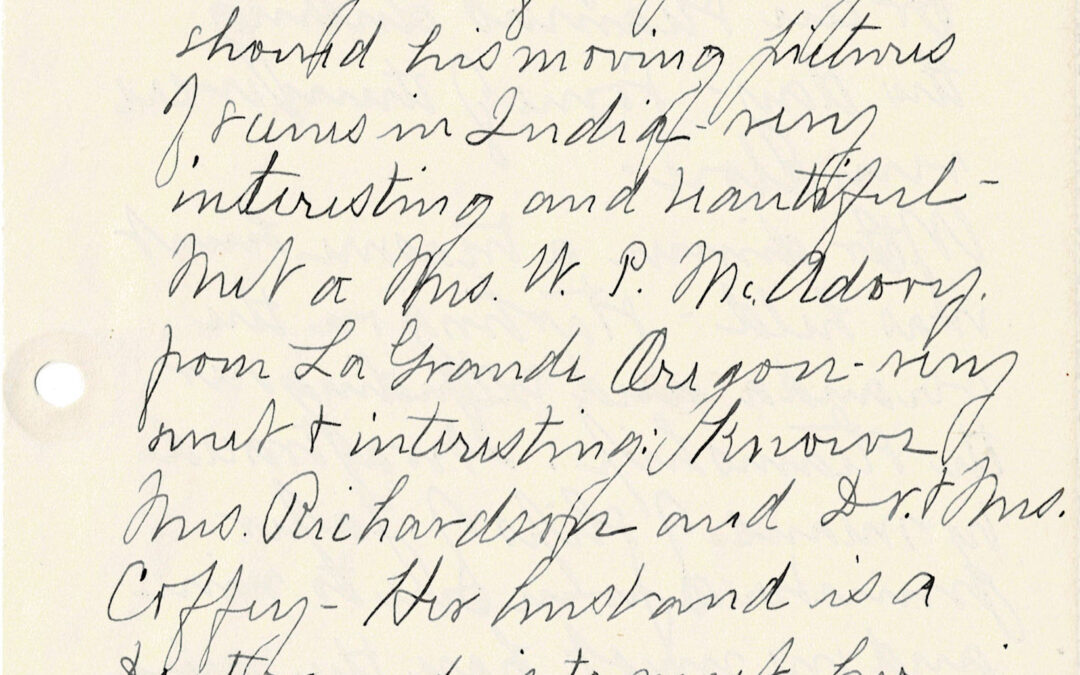 showed his moving pictures
of scenes in India - very
interesting and beautiful -
Met a Mrs. W. P. McAdory.
from La Grande Oregon - very
sweet & interesting: Knows
Mrs. Richardson and Dr. & Mrs.
Coffey - Her husband is a
to meet her